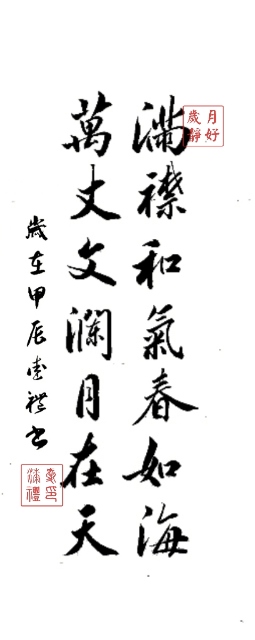 滿襟和氣春如海
萬丈文瀾月在天
歲在甲辰書
月好
歲靜